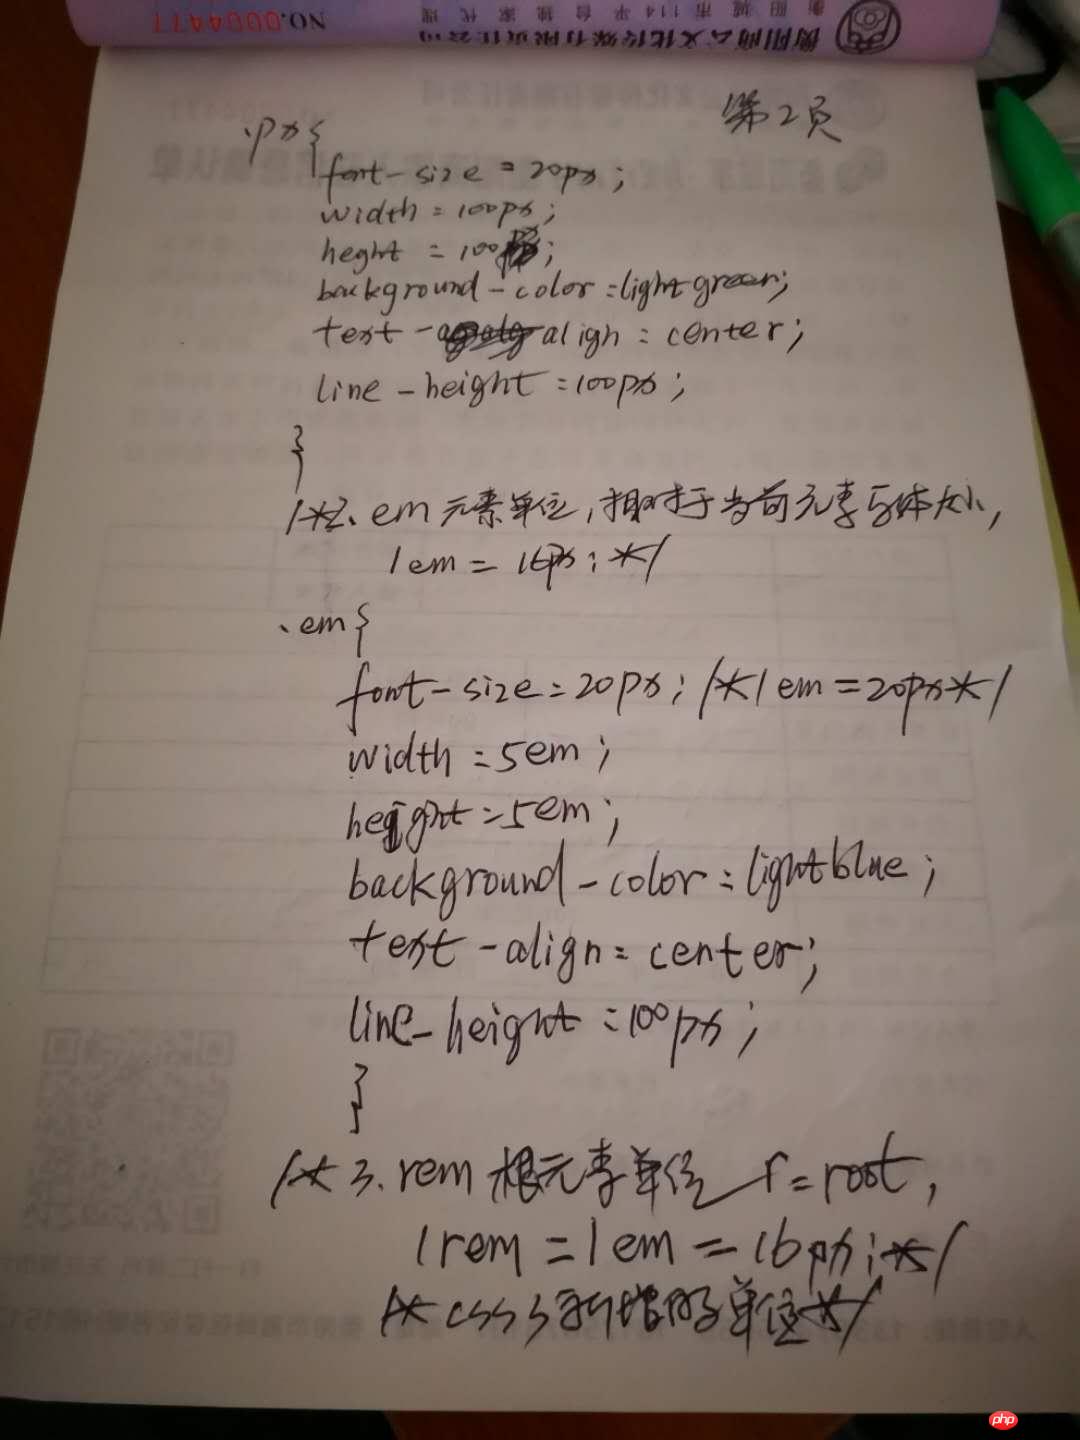 NO.0004477
衡阳城市114平台独家代理
衡阳尚云文化传媒有限责任公司
第2页
.px{
font-size=20px;
width=100px;
heght=100px;
background-color=lightgreen;
text-align=center;
line-height=100px;
}
/*2、em元素单位,相对于当前元素字体大小,
1em=16px;*/
.em{
font-size=20px;/*1em=20px*/
width=5em;
height=5em;
background-color=lightblue;
text-align=center;
line-height=100px;
}
/*3.rem根元素单位 r=root,
1rem=1em=16px;*/
/*css3新增的单位*/
php